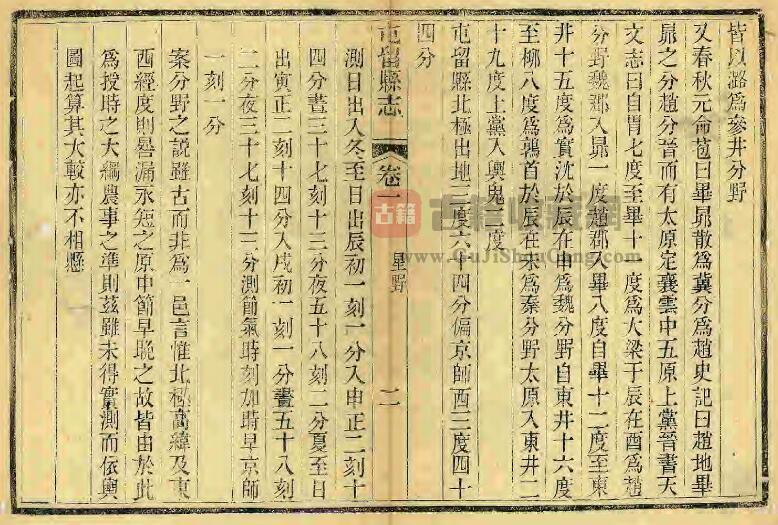 皆以潞為參井分野
又春秋元命苞曰畢昴散為冀分為趙史記曰趙地畢
昴之分趙分晉而有太原定襄雲中五原上黨晉書天
文志曰自胃七度至畢十一度為大梁于辰在酉為趙
分野魏郡入昴一度趙郡入畢八度自畢十二度至東
井十五度為實沈於辰在申為魏分野自東井十六度
至柳八度為鶉首於辰在未為秦分野太原入東井二
十九度上黨入輿鬼二度
屯留縣北極出地三度六十四分偏京師西三度四十
四分
屯留縣志
卷一
星野
二
測日出入冬至日出辰初一刻一分入申正二刻十
四分晝三十七刻十三分夜五十八刻二分夏至日
出寅正二刻十四分入戌初一刻一分晝五十八刻
二分夜三十七刻十三分測節氣時刻加時早京師
一刻一分
案分野之説雖古而非為一邑言惟北極高緯及東
西經度則晷漏永短之原中節早晚之故皆由於此
為授時之大綱農事之準則茲雖未得實測而依輿
圖起算其大較亦不相懸
古籍
古籍收藏网
www.GuJiShouCang.com